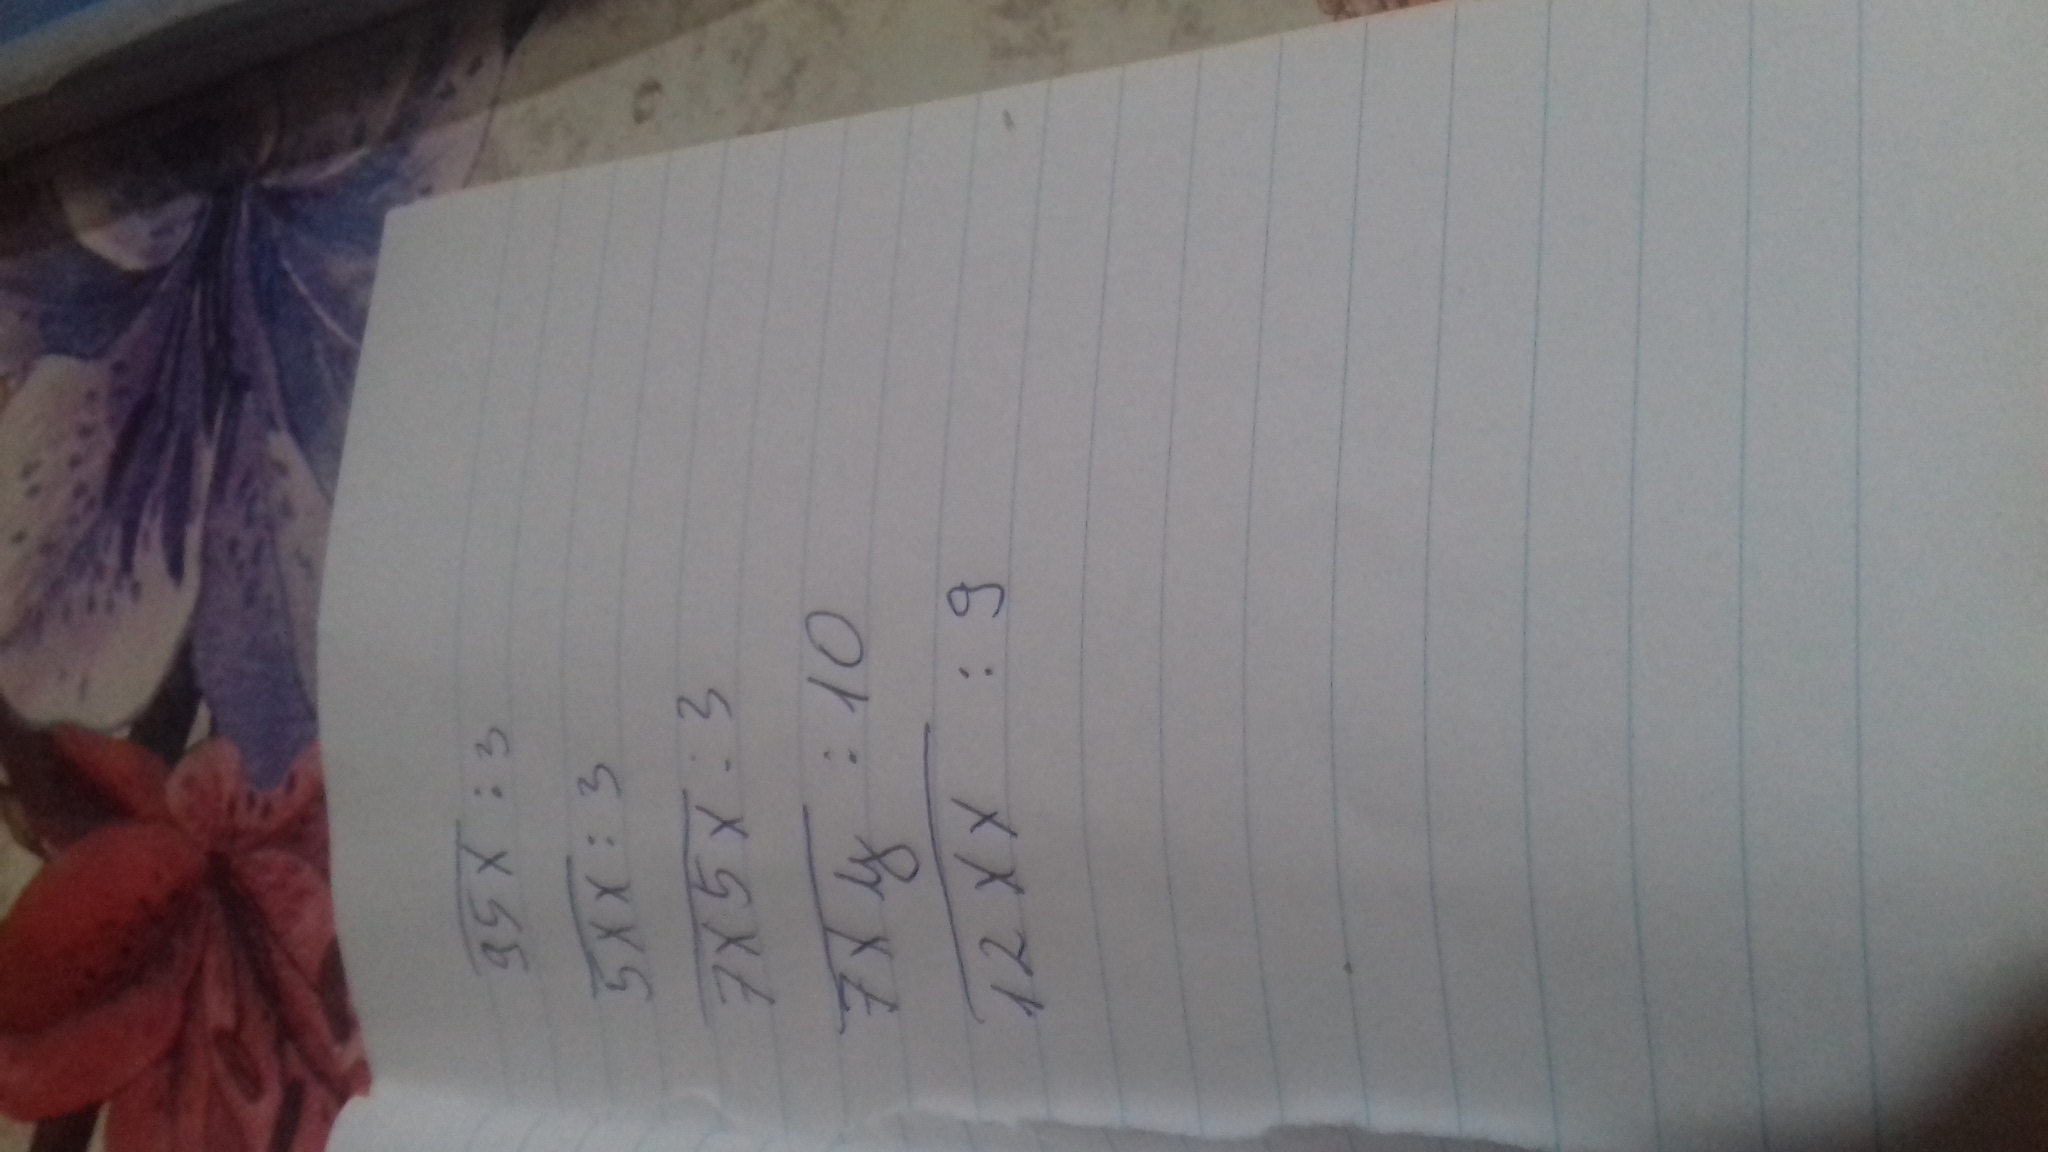 95x : 3
5xx : 3
7x5x : 3
7xy : 10
12xx : 9